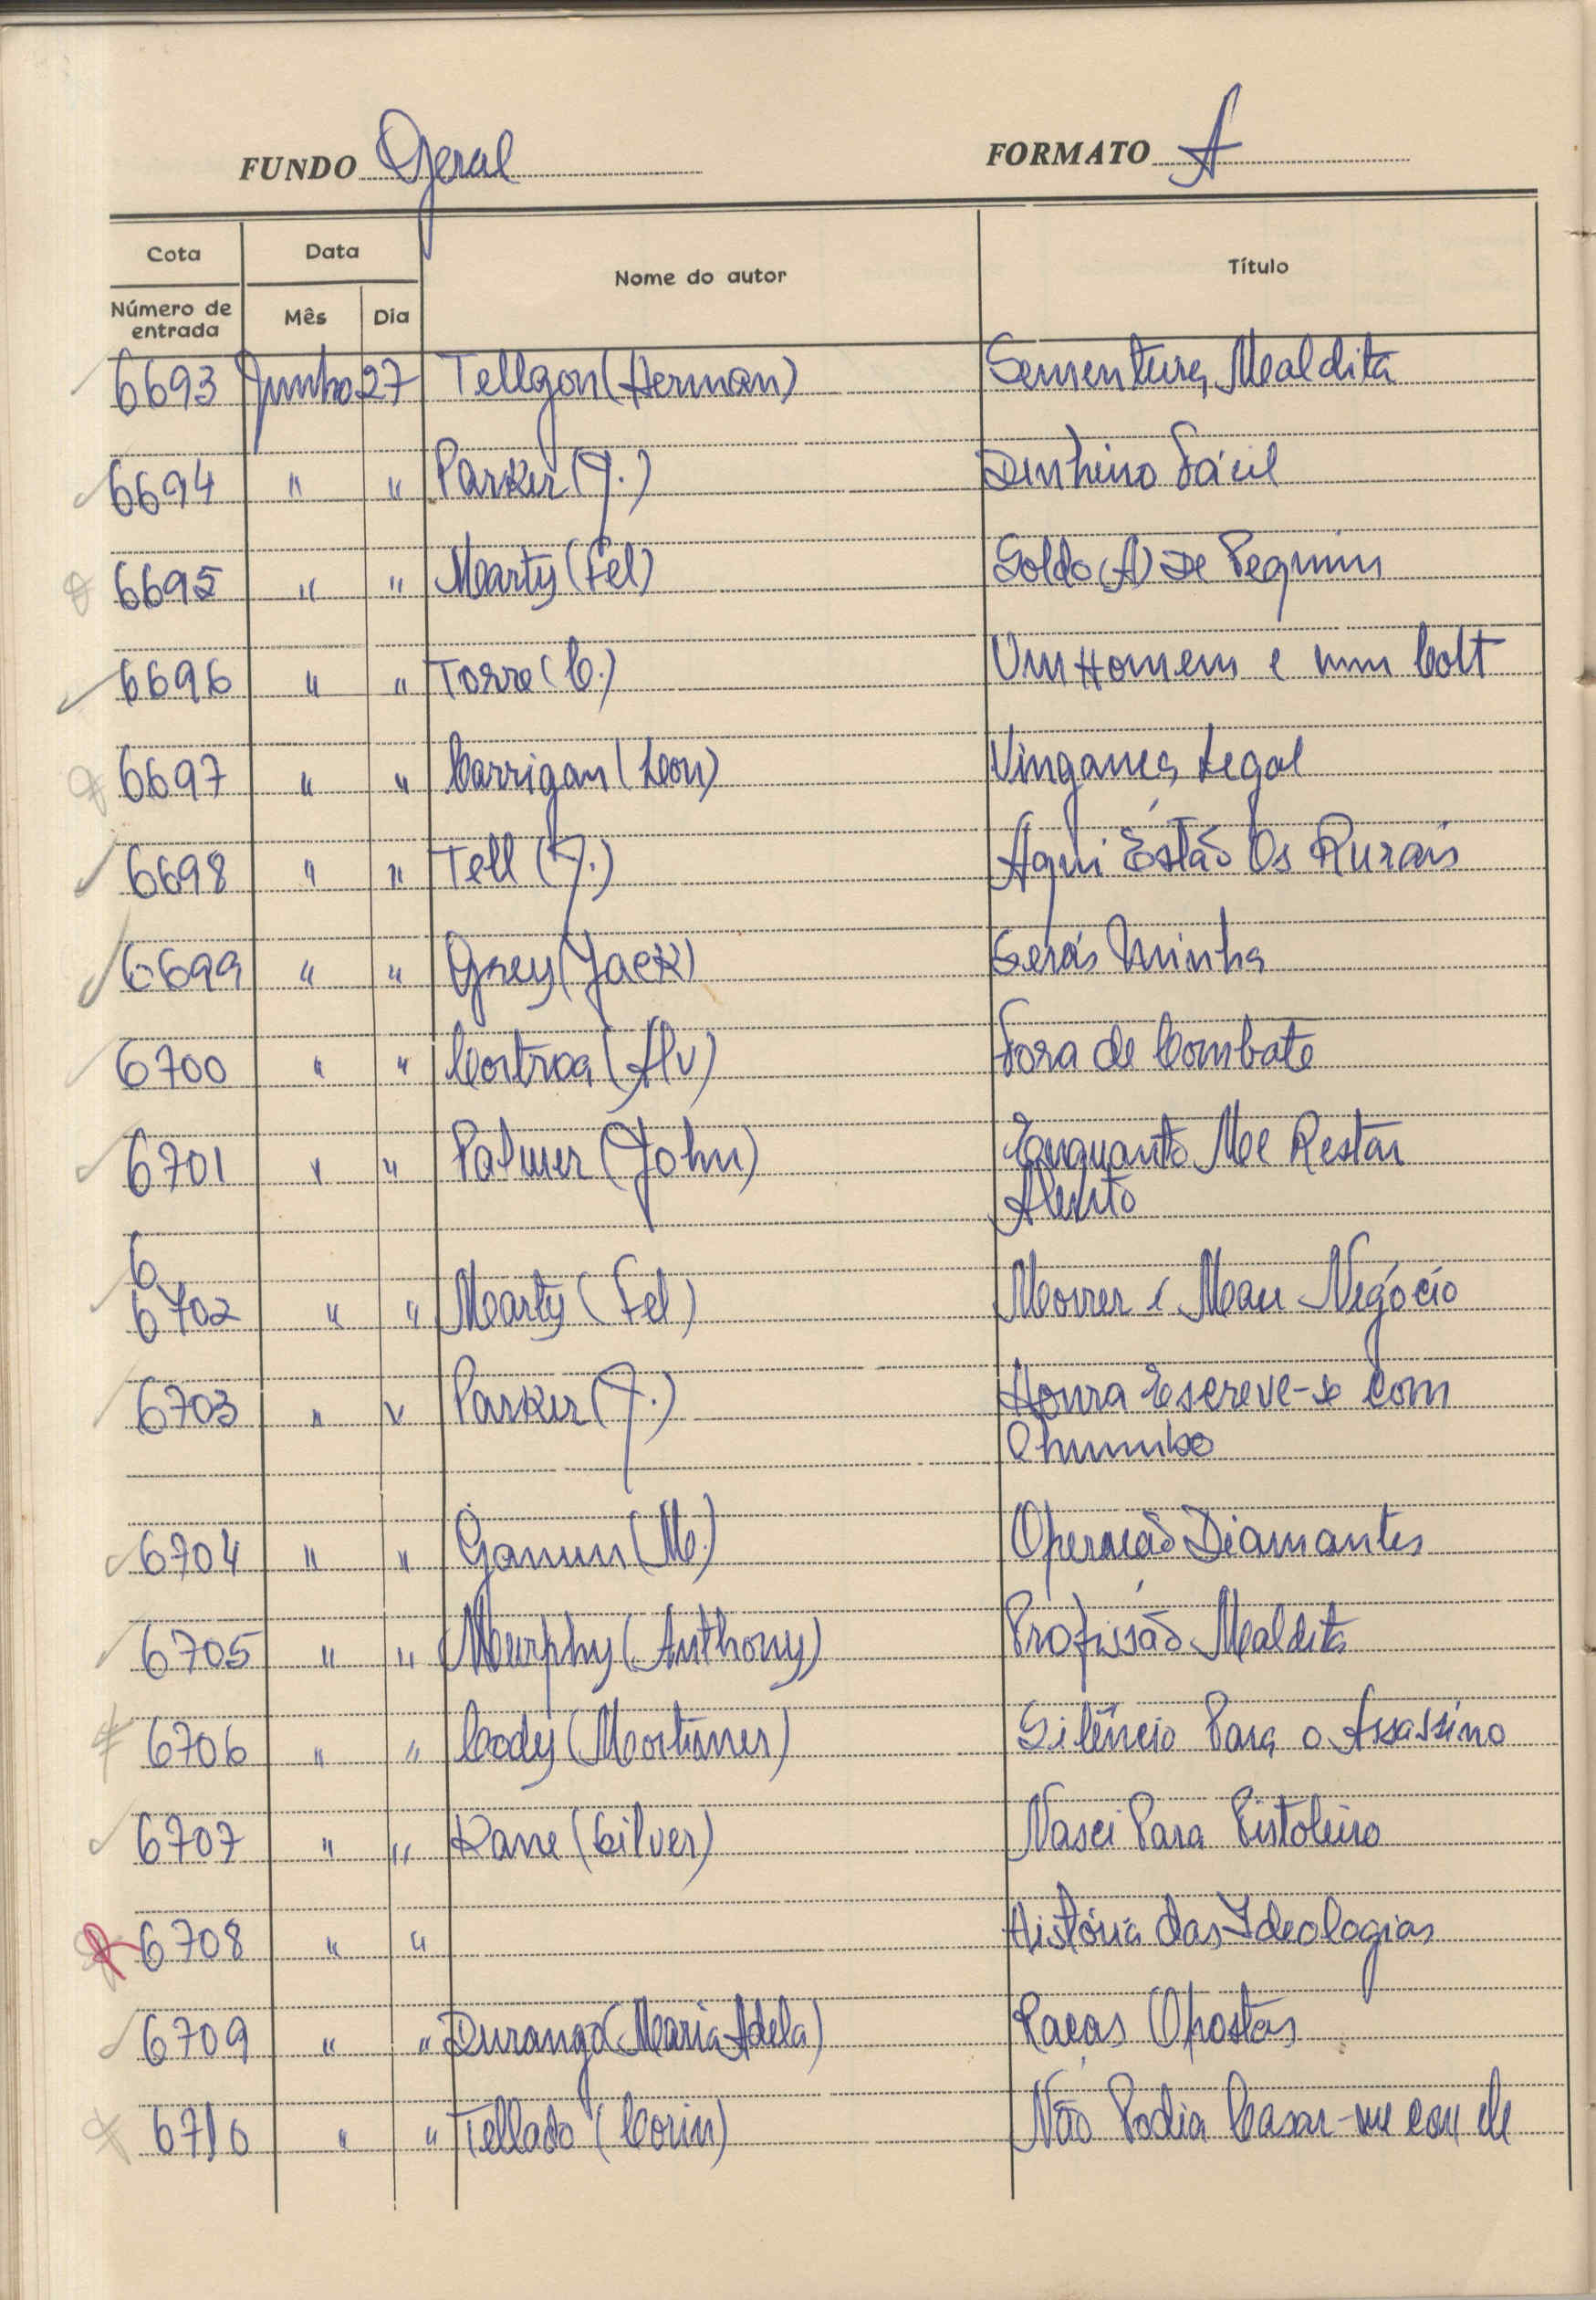 FUNDO Geral FORMATO A
Cota Data Nome do autor Título
Número de entrada Mês Dia
6693 Junho 27 Tellgon (Herman) Sementura Maldita
6694 " " Parker (J.) Dinheiro Fácil
6695 " " Marty (Fel) Soldo (A) De Pequim
6696 " " Torre (C.) Um Homem e um Colt
6697 " " Carrigan (Leon) Vingança Legal
6698 " " Tell (J.) Aqui Estão Os Rurais
6699 " " Grey (Jack) Serás Minha
6700 " " (Alv) Fora de Combate
6701 " " Palmer (John) Enquanto Me Restar
Alento
6
6702 " " Marty (Fel) Morrer é Mau Negócio
6703 " " Parker (J.) Honra Escreve-se Com
Chumbo
6704 " " (M.) Operação Diamantes
6705 " " Murphy (Anthony) Profissão Maldita
6706 " " Cody (Mortimer) Silêncio Para o Assassino
6707 " " Kane (Silver) Nasci Para Pistoleiro
6708 " " História das Ideologias
6709 " " Durango (Maria Adela) Raças Opostas
6710 " " Tellado (Corin) Não Podia Casar-me com ele